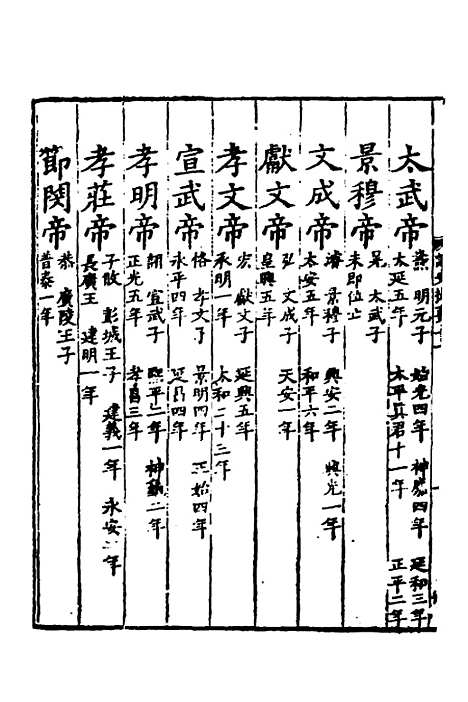 太武帝 燾 明元子 始光四年 神䴥四年 延和三年
太延五年 太平真君十一年 正平二年
景穆帝 晃 太武子
未即位亡
文成帝 濬 景穆子 興安二年 興光一年
太安五年 和平六年
獻文帝 弘 文成子 天安一年
皇興五年
孝文帝 宏 獻文子 延興五年
承明一年 太和二十三年
宣武帝 恪 孝文子 景明四年 正始四年
永平四年 延昌四年
孝明帝 詡 宣武子 熙平二年 神龜二年
正光五年 孝昌三年
孝莊帝 子攸 彭城王子 建義一年 永安二年
長廣王 建明一年
節閔帝 恭 廣陵王子
普泰一年